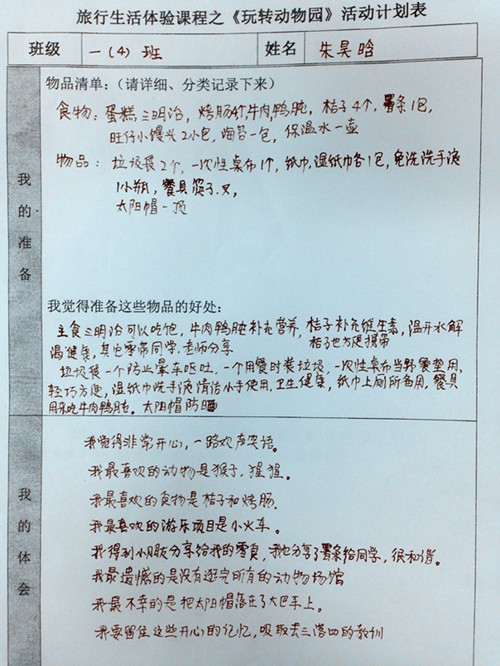 旅行生活体验课程之《玩转动物园》活动计划表
班级 一（4）班 姓名 朱昊晗
我的准备
物品清单：（请详细、分类记录下来）
食物：蛋糕三明治，烤肠4个牛肉鸭肫，桔子4个，薯条1包，
旺仔小馒头2小包，海苔一包，保温水一壶
物品：垃圾袋2个，一次性桌布1个，纸巾，湿纸巾各1包，免洗洗手液
1小瓶，餐具筷子，叉，
太阳帽一顶
我觉得准备这些物品的好处：
主食三明治可以吃饱，牛肉鸭肫补充营养，桔子补充维生素，温开水解
渴健康，其它零食同学，老师分享 桔子也方便携带
垃圾袋一个防止晕车呕吐，一个用餐时装垃圾，一次性桌布当野餐垫用，
轻巧方便，湿纸巾洗手液清洁小手使用，卫生健康，纸巾上厕所备用，餐具
用来吃牛肉鸭肫。太阳帽防晒
我的体会
我觉得非常开心，一路欢声笑语。
我最喜欢的动物是猴子，猩猩。
我最喜欢的食物是桔子和烤肠。
我最喜欢的游乐项目是小火车。
我得到小朋友分享给我的零食，我也分享了薯条给同学，很和谐。
我最遗憾的是没有逛完所有的动物场馆
我最不幸的是把太阳帽落在了大巴车上。
我要留住这些开心的记忆，吸取丢三落四的教训